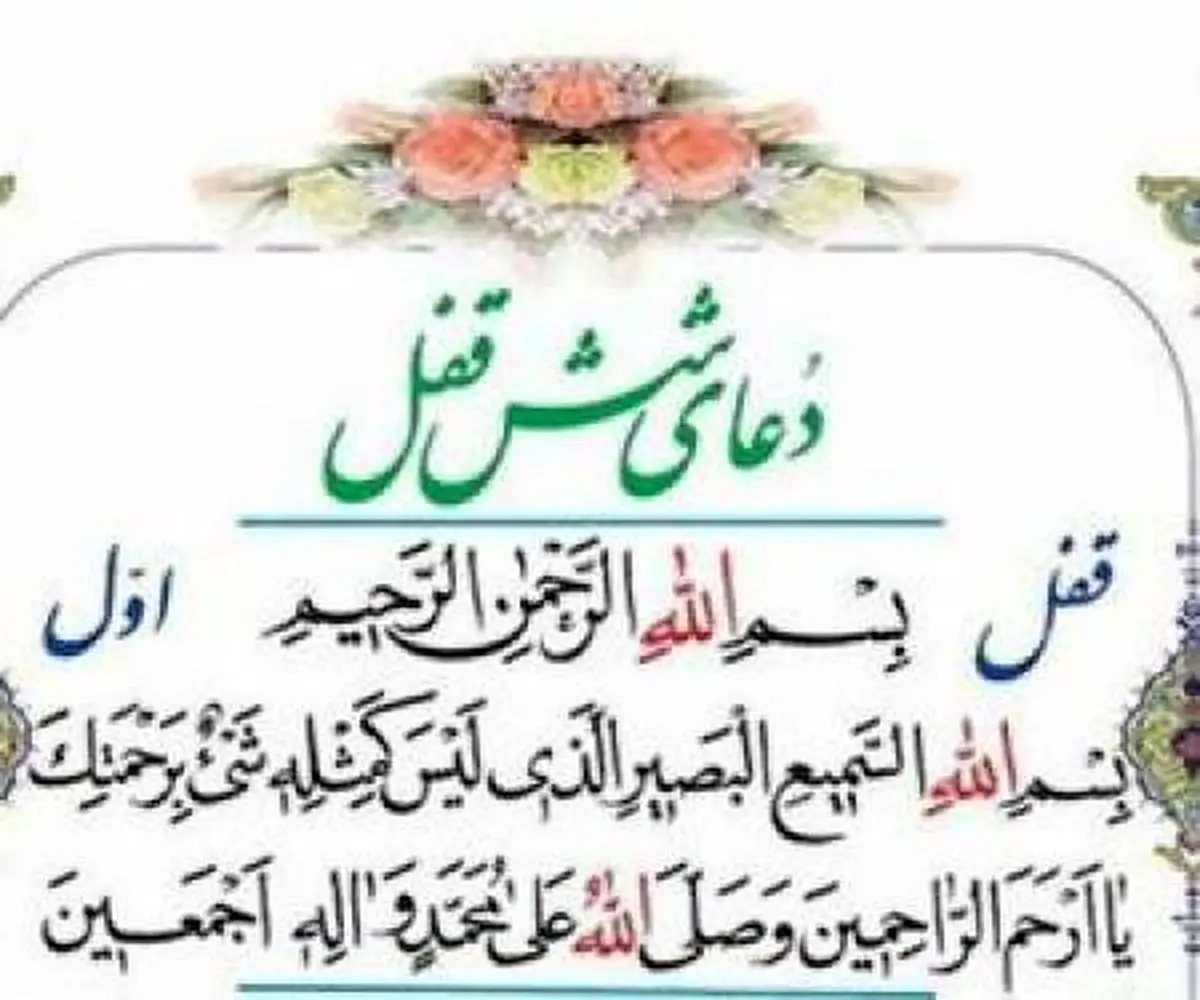 دُعای شش قفل
قفل بِسْمِ اللّٰهِ الرَّحْمٰنِ الرَّحیمِ اوّل
بِسْمِ اللّٰهِ السَّمیعِ الْبَصیرِ الَّذی لَیْسَ کَمِثْلِهِ شَیْءٌ بِرَحْمَتِكَ
یٰا اَرْحَمَ الرّٰاحِمینَ وَ صَلَّی اللّٰهُ عَلیٰ مُحَمَّدٍ وَ اٰلِهِ اَجْمَعینَ